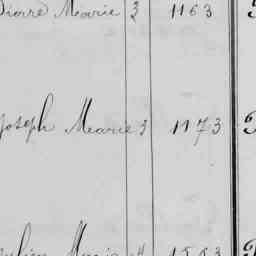 Pierre Marie 2 1163
Joseph Marie 3 1173
Julien Marie 4 1553